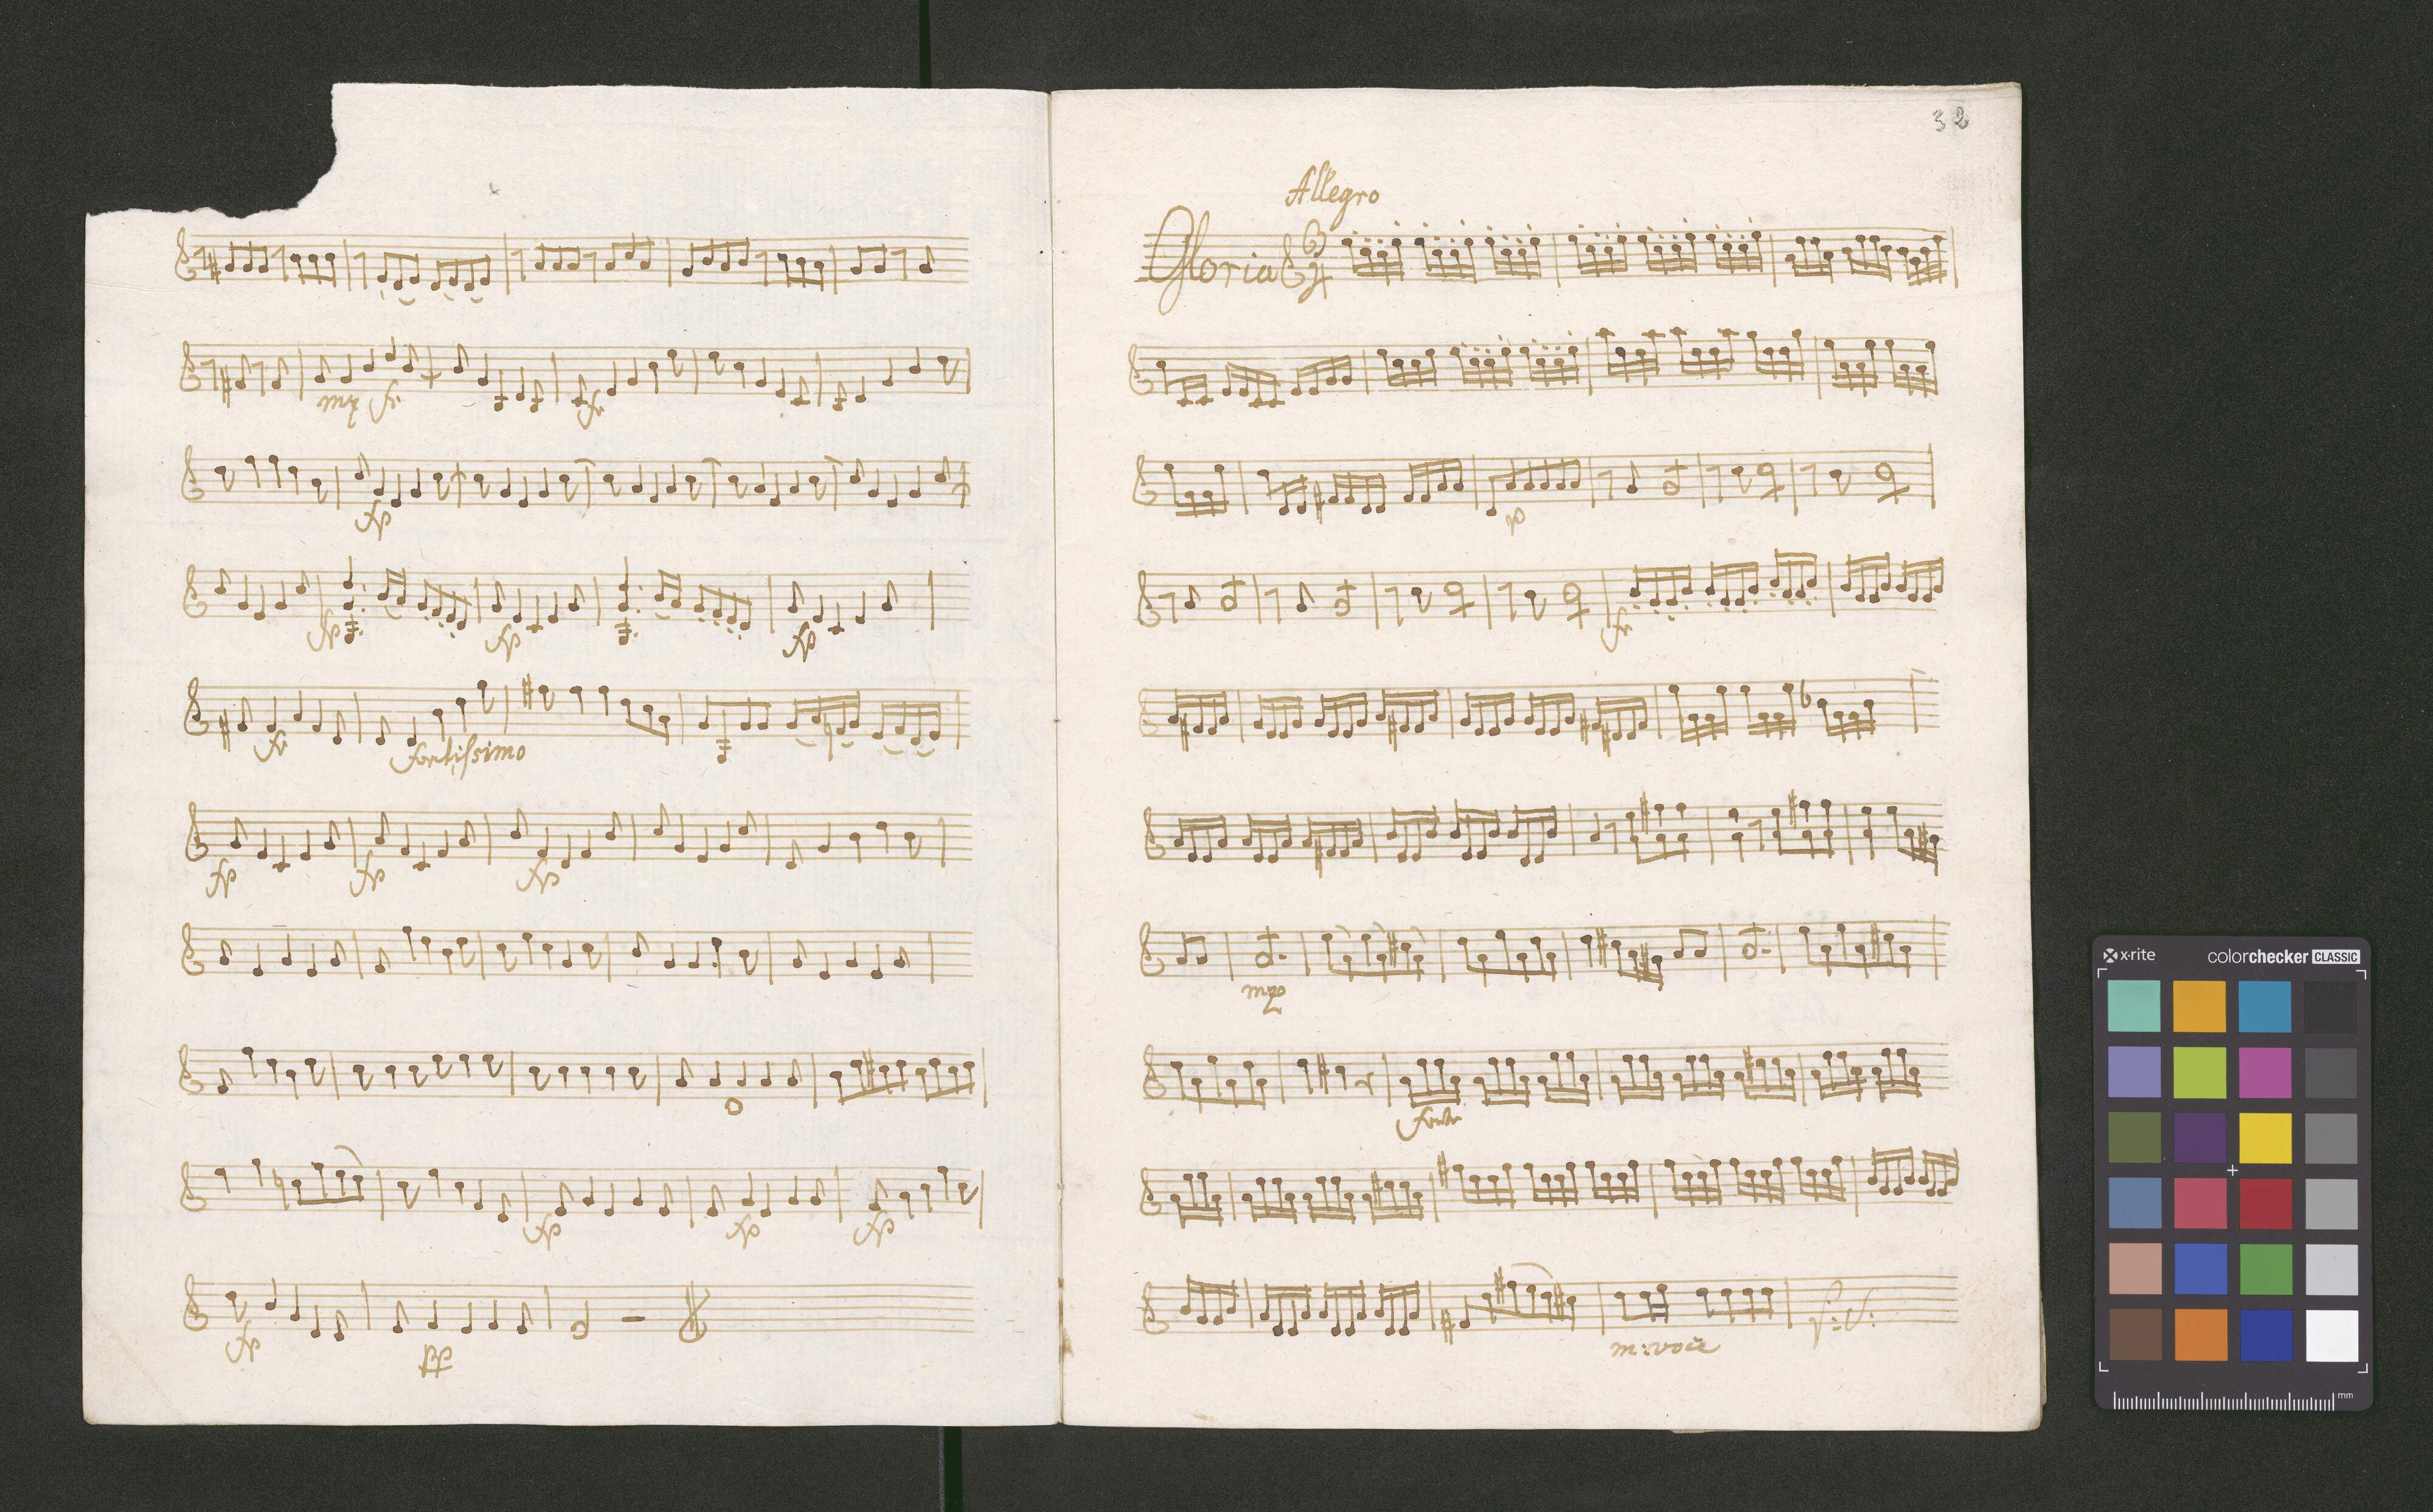 mz f:
f:
fp
fp fp fp
f: fortissimo
fp fp fp
fp fp fp
fp pp
32
Allegro
Gloria 3/4
p
f:
mzo
forte
m: voce V: S:
x-rite colorchecker CLASSIC
mm